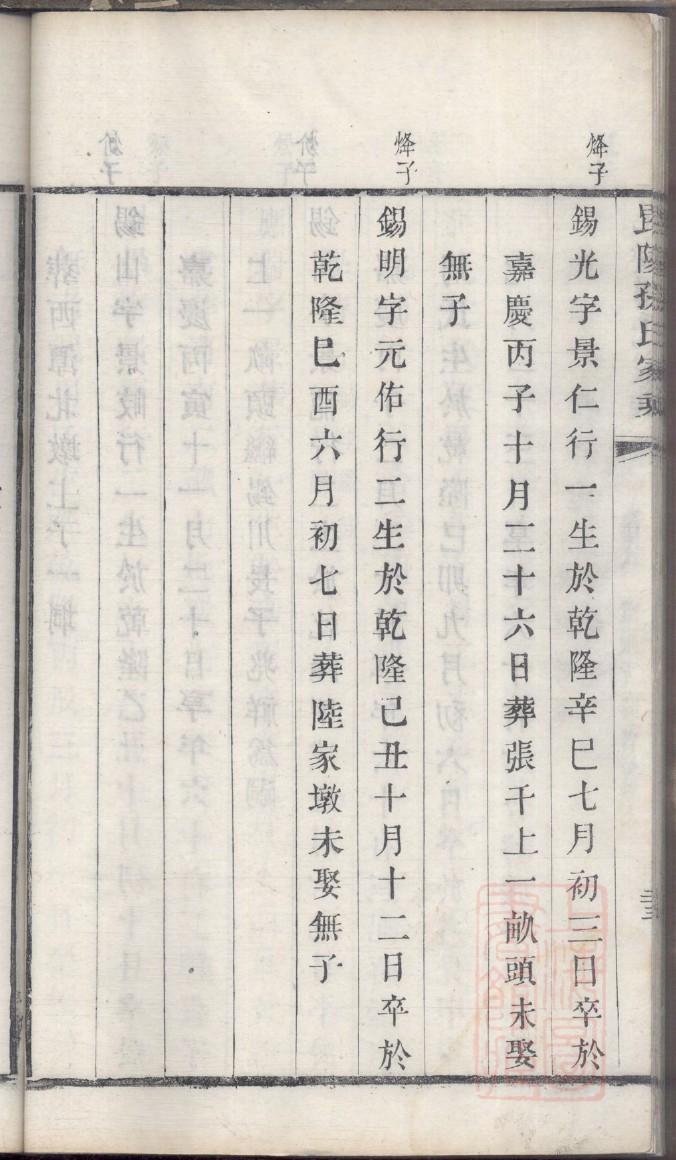 毘陵孫氏家乘
烽子
錫光字景仁行一生於乾隆辛巳七月初三日卒於
嘉慶丙子十月二十六日葬張千上一畝頭未娶
無子
烽子
錫明字元佑行二生於乾隆己丑十月十二日卒於
乾隆己酉六月初七日葬陸家墩未娶無子